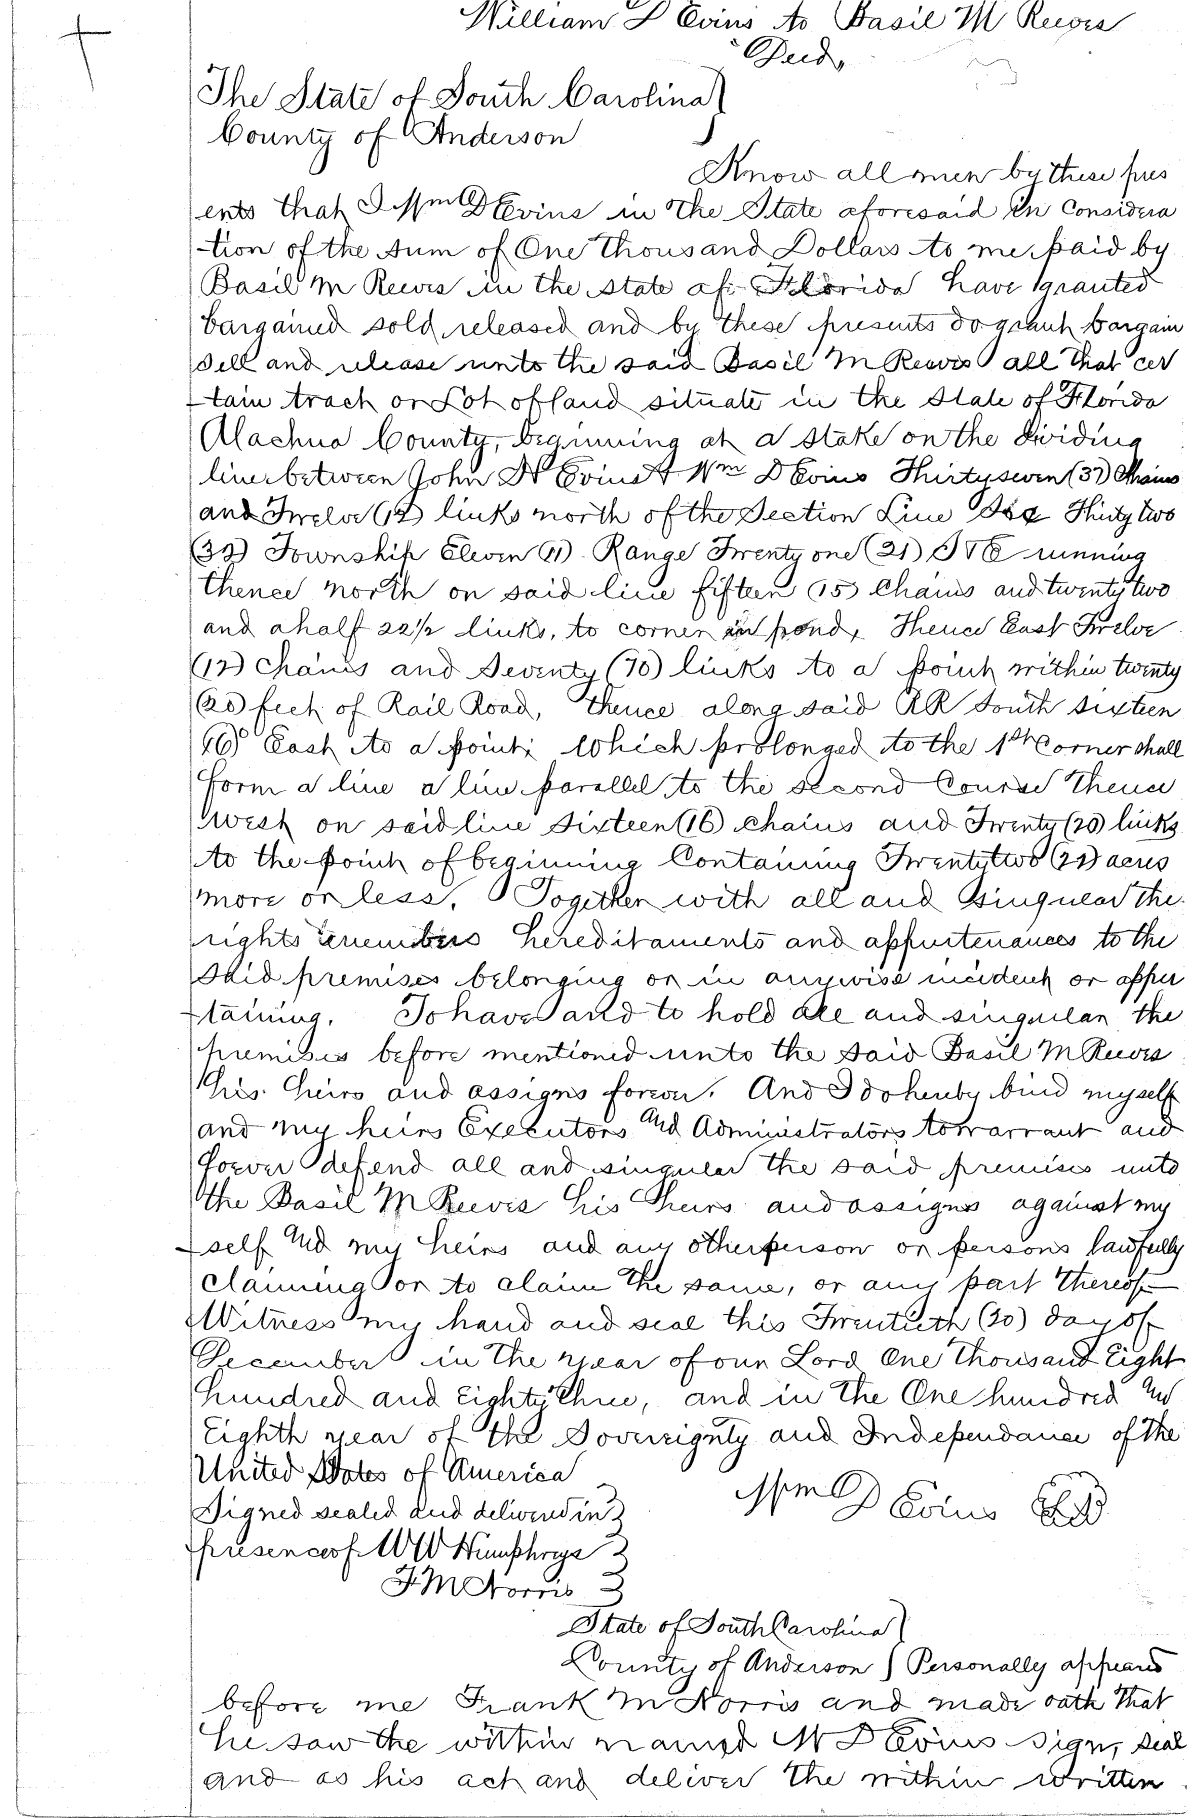 William D Evins to Basil M Reeves
Deed,
The State of South Carolina
County of Anderson
Know all men by these pres
ents that I Wm D Evins in the State aforesaid in Considera
tion of the sum of One Thousand Dollars to me paid by
Basil M Reeves in the state of Florida have granted
bargained sold released and by these presents do grant bargain
sell and release unto the said Basil M Reeves all that cer
tain tract or Lot of land situate in the State of Florida
Alachua County, beginning at a stake on the dividing
line between John H Evins & Wm D Evins Thirty seven (37) Chains
and Twelve (12) links north of the Section Line Thirty two
(32) Township Eleven (11) Range Twenty one (21) running
thence north on said line fifteen (15) Chains and twenty two
and a half 22 1/2 links, to corner in pond, Thence East Twelve
(12) Chains and Seventy (70) links to a point within twenty
(20) feet of Rail Road, thence along said RR South sixteen
(16)° East to a point, which prolonged to the 1st Corner shall
form a line a line parallel to the second Course Thence
west on said line Sixteen (16) chains and Twenty (20) links
to the point of beginning Containing Twenty two (22) acres
more or less, Together with all and singular the
rights members hereditaments and appurtenances to the
said premises belonging or in anywise incident or apper
taining. To have and to hold all and singular the
premises before mentioned unto the said Basil M Reeves
his heirs and assigns forever. And I do hereby bind myself
and my heirs Executors and Administrators to warrant and
forever defend all and singular the said premises unto
the Basil M Reeves his heirs and assigns against my
self and my heirs and any other person or persons lawfully
claiming or to claim the same, or any part thereof
Witness my hand and seal this Twentieth (20) day of
December in the year of our Lord One thousand Eight
hundred and Eighty three, and in the One hundred and
Eighth year of the Sovereignty and Independance of the
United States of America
Signed sealed and delivered in
Wm D Evins
presence of WW Humphreys
F M Norris
State of South Carolina
County of Anderson Personally appeared
before me Frank M Norris and made oath that
he saw the within named W D Evins sign, seal
and as his act and deliver the within written